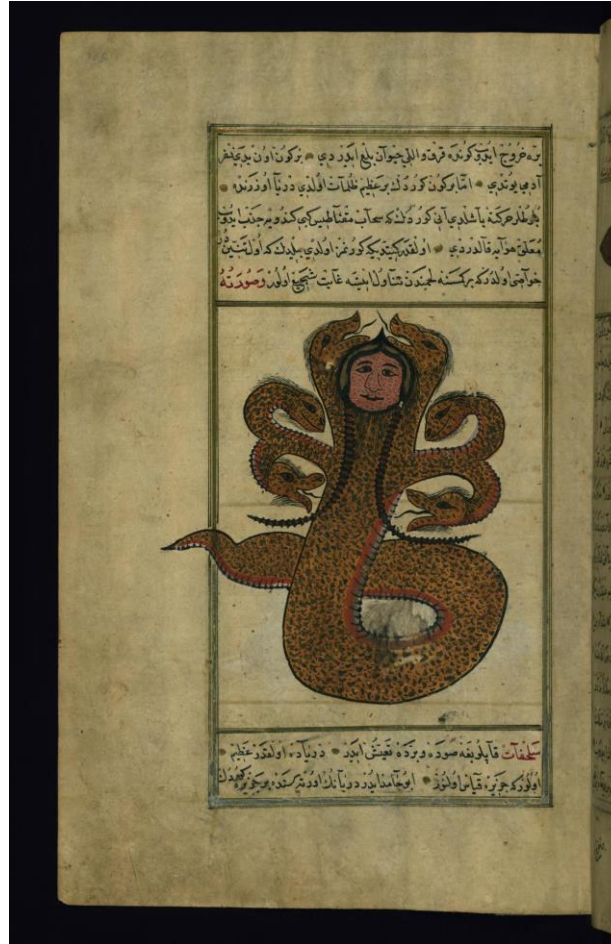 یره خروج ایدوب کونده قرق و اللی حیوان بلع ایدر دی بر کون اون یدی نفر
آدمی یوتدی امّا بر کون کوردك بر عظیم ظلمات اولدی دریا اوزرنده
حرکته باشلدی آنی کوردك که سحاب مقناطیس کبی کندویه جذب ایدوب
معلق هوایه قالدردی اولقدر کیتدیکه کورنمز اولدی بیلدك که اول تنین در
خواصی اولدرکه بر کسنه لحمندن تناول ایتسه غایت شجیع اولور وصورته
سلحفات قاپلو بغه صوده و برده تعیش ایدر دریاده اولقدر عظیم
اولورکه جزیره قیاس اولنور ابو حامد ایدر دریانك اورته سنده بر جزیره کوردك